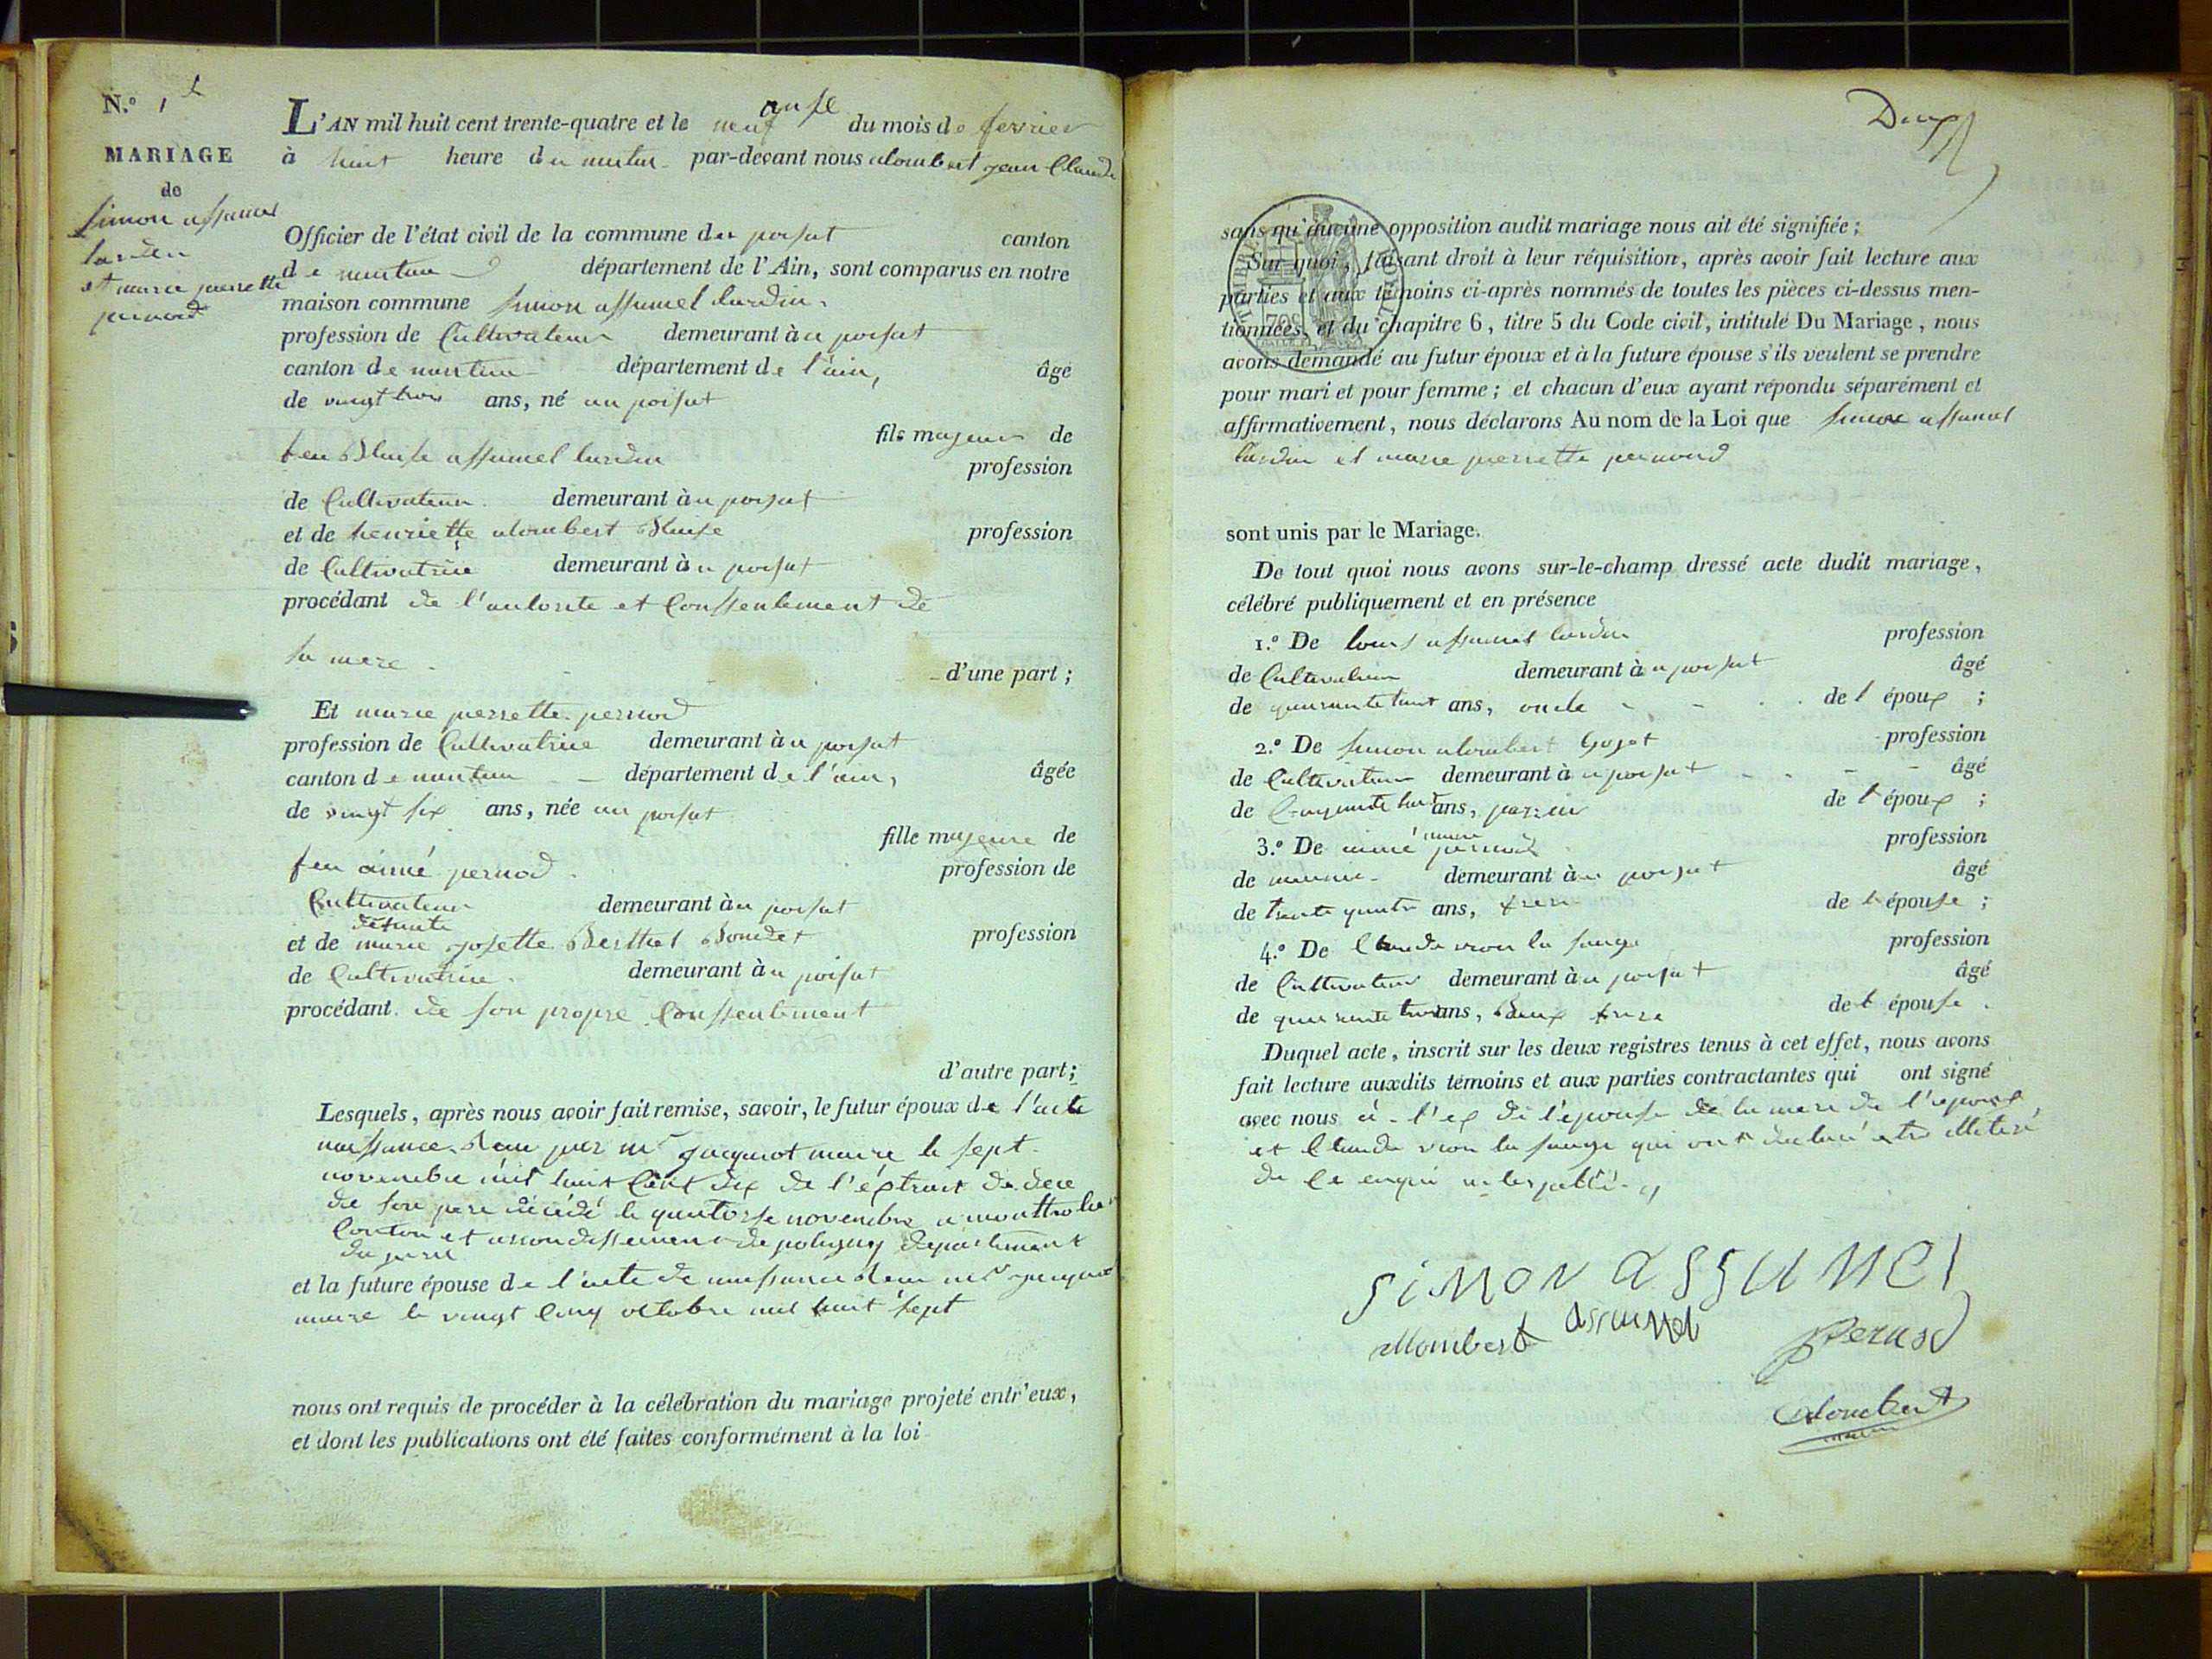 N.º 1
MARIAGE
de
Simon assumel
lurdin
et marie pierrette
pernod
L'AN mil huit cent trente-quatre et le neuf onse du mois de fevrier
à huit heure du matin par-devant nous alombert jean Claude
Officier de l'état civil de la commune du poisat canton
de nantua département de l'Ain, sont comparus en notre
maison commune Simon assumel lurdin
profession de Cultivateur demeurant à u poisat
canton de nantua département de l'ain, âgé
de vingt trois ans, né au poisat
fils majeur de
feu Blaise assumel lurdin
profession
de Cultivateur demeurant à u poisat
et de henriette alombert Blaise profession
de Cultivatrice demeurant à u poisat
procédant de l'autorite et Conssentement de
sa mere d'une part ;
Et marie pierrette pernod
profession de Cultivatrice demeurant à u poisat
canton de nantua département de l'ain, âgée
de vingt six ans, née au poisat
fille majeure de
feu aimé pernod profession de
Cultivateur demeurant à u poisat
et de defunte marie josette Berthet Bondet profession
de Cultivatrice demeurant à u poisat
procédant de son propre Conssentement
d'autre part ;
Lesquels, après nous avoir fait remise, savoir, le futur époux de l'acte
naissance par mr jacquiot maire le sept
novembre mil huit Cent dix de l'extrait de
de son pere décédé le quatorse novembre a
Conton et arrondissement de poligny departement
du jura
et la future épouse de l'acte de naissance mr
maire le vingt Cinq octobre mil huit sept
nous ont requis de procéder à la célébration du mariage projeté entr'eux,
et dont les publications ont été faites conformément à la loi
Deux
sans qu'aucune opposition audit mariage nous ait été signifiée ;
Sur quoi, faisant droit à leur réquisition, après avoir fait lecture aux
parties et aux témoins ci-après nommés de toutes les pièces ci-dessus men-
tionnées, et du chapitre 6, titre 5 du Code civil, intitulé Du Mariage, nous
avons demandé au futur époux et à la future épouse s'ils veulent se prendre
pour mari et pour femme ; et chacun d'eux ayant répondu séparément et
affirmativement, nous déclarons Au nom de la Loi que Simon assumel
lurdin et marie pierrette pernod
sont unis par le Mariage.
De tout quoi nous avons sur-le-champ dressé acte dudit mariage,
célébré publiquement et en présence
1.º De louis assumel lurdin profession
de Cultivateur demeurant à u poisat âgé
de quarante huit ans, oncle de l époux ;
2.º De Simon alombert Goget profession
de Cultivateur demeurant à u poisat âgé
de Cinquante huit ans, parain de l époux ;
3.º De aimé pernod profession
de demeurant à u poisat âgé
de trente quatre ans, frere de l épouse ;
4.º De Claude vion la sauge profession
de Cultivateur demeurant à u poisat âgé
de quarante trois ans, Baux frere de l épouse
Duquel acte, inscrit sur les deux registres tenus à cet effet, nous avons
fait lecture auxdits témoins et aux parties contractantes qui ont signé
avec nous de l'épouse de la mere de l'epoux
et Claude vion la sauge qui ont declaré etre illiteré
de Ce enqui
Simon assumel
Alombert assumel pernod
Alombert
maire